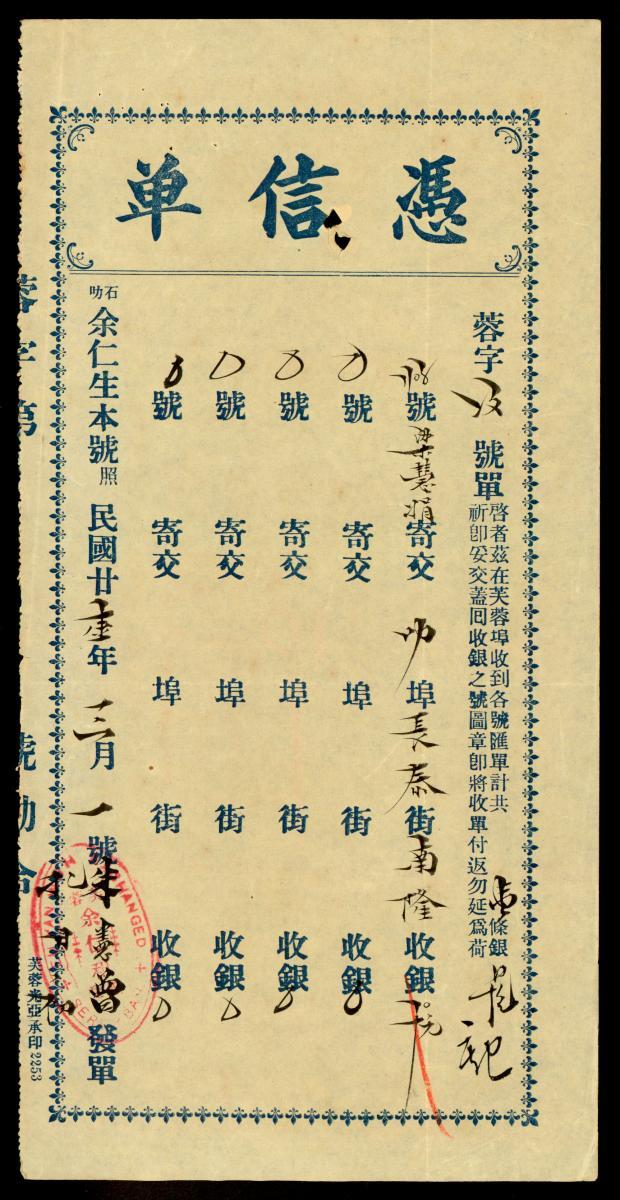 憑信单
蓉字 号單
啓者茲在芙蓉埠收到各號匯單計共 壹條銀
祈卽妥交蓋囘收銀之號圖章卽將收單付返勿延爲荷
號梁慧娟寄交 叻埠長泰街南隆收銀
號 寄交 埠 街 收銀
號 寄交 埠 街 收銀
號 寄交 埠 街 收銀
號 寄交 埠 街 收銀
石叻余仁生本號照 民國廿壹年 三月 一號 發單
蓉字第 號
芙蓉光亞承印2253
余仁生
CHANGED
SEREMBAN